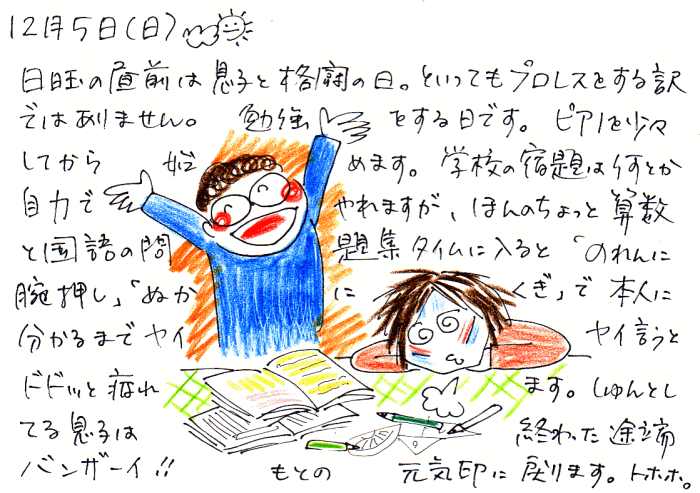 12月5日(日)
日旺の直前は息子と格闘の日。といってもプロレスをする訳
ではありません。 勉強 をする日です。 ピアノを少々
してから 始 めます。 学校の宿題は何とか
自力で やれますが、ほんのちょっと算数
と国語の問 題集タイムに入ると「のれんに
腕押し」「ぬか に くぎ」で本人に
分かるまでヤイ ヤイ言うと
ドドッと疲れ ます。しゅんとし
てる息子は 終わった途端
バンザーイ!! もとの 元気印に戻ります。トホホ。